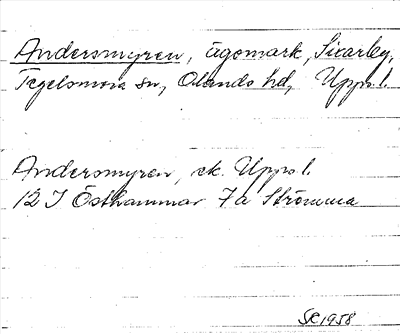 Andersmyren, ägomark, Sixarby,
Tegelsmora sn, Olands hd, Upps. l.
Andersmyren, ek. Upps. l.
12 I Östhammar 7a Strömma
SK 1958